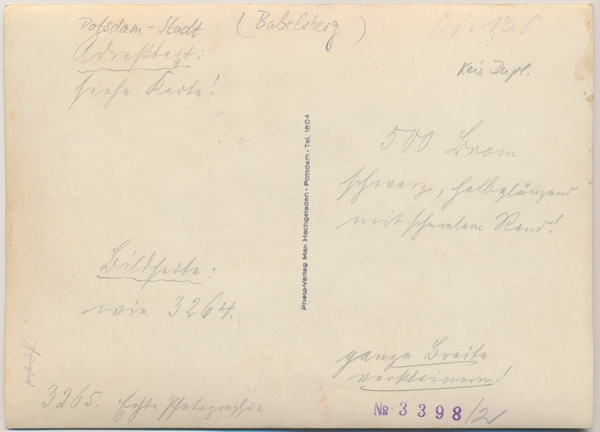 Potsdam-Stadt (Babelsberg)
Adreßtext:
siehe Karte!
Kein Dupl.
500 Brom
schwarz, halbglänzend
mit schmalem Rand!
Photo-Verlag Max Hochgeladen · Potsdam · Tel. 1804
Bildseite:
wie 3264.
ganze Breite
verkleinern!
3265. Echte Photographie
№ 3398/2